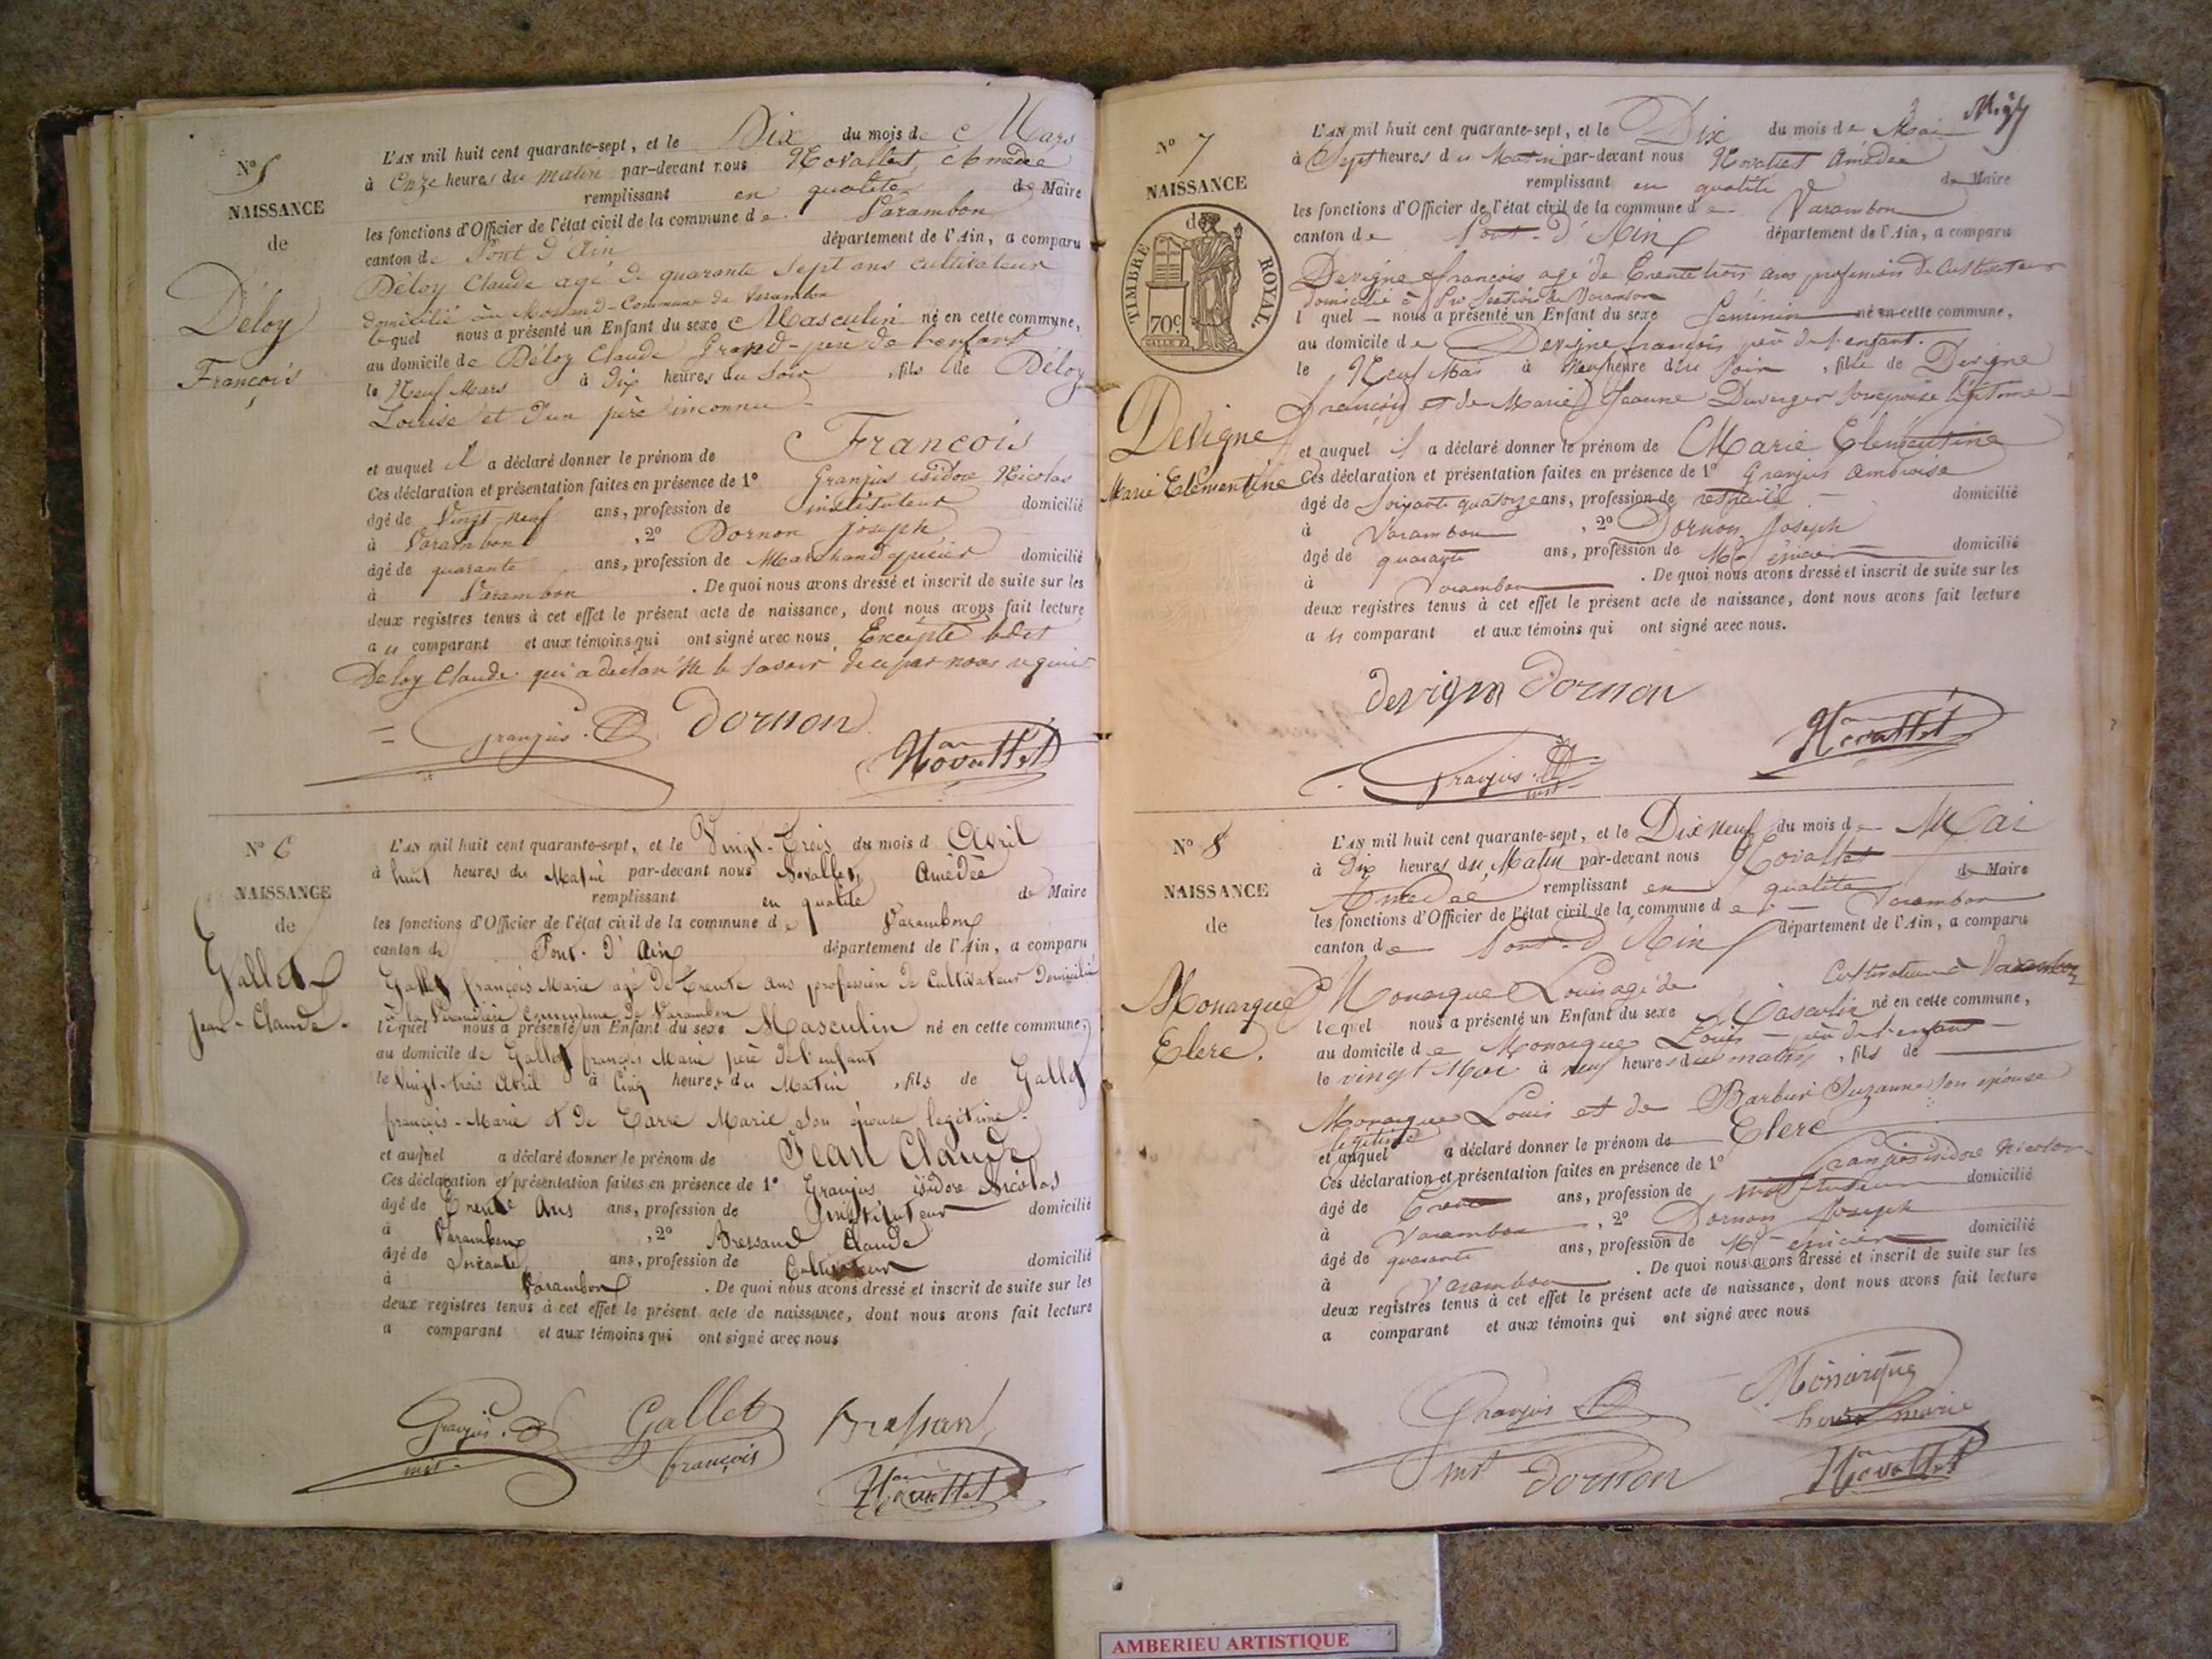 N° 5
NAISSANCE
de
Déloy
François
L'AN mil huit cent quarante-sept, et le Dix du mois de Mars
à Onze heures du matin par-devant nous Novallet, Amédée
remplissant en qualité de Maire
les fonctions d'Officier de l'état civil de la commune de Varambon
canton de Pont d'Ain département de l'Ain, a comparu
Déloy Claude agé de quarante Sept ans cultivateur
domicilié au Morand-Commune de Varambon
lequel nous a présenté un Enfant du sexe Masculin né en cette commune,
au domicile de Déloy Claude Grand-père de l'enfant
le Neuf Mars à Dix heures du Soir, fils de Déloy
Louise et d'un père inconnu
et auquel il a déclaré donner le prénom de François
Ces déclaration et présentation faites en présence de 1° Granjus isidore Nicolas
âgé de Vingt-neuf ans, profession de instituteur domicilié
à Varambon, 2° Dornon joseph
âgé de quarante ans, profession de Marchand épicier domicilié
à Varambon. De quoi nous avons dressé et inscrit de suite sur les
deux registres tenus à cet effet le présent acte de naissance, dont nous avons fait lecture
au comparant et aux témoins qui ont signé avec nous Excepté ledit
Deloy Claude qui a déclaré ne le savoir de ce par nous requis
Granjus Dornon
Novallet
N° 6
NAISSANCE
de
Gallet
Jean-Claude.
L'AN mil huit cent quarante-sept, et le Vingt-Trois du mois d Avril
à huit heures du Matin par-devant nous Novallet, Amédée
remplissant en qualité de Maire
les fonctions d'Officier de l'état civil de la commune de Varambon
canton de Pont-d'Ain département de l'Ain, a comparu
Gallet françois Marie agé de Trente ans profession de Cultivateur Domicilié
à la Commune de Varambon
lequel nous a présenté un Enfant du sexe Masculin né en cette commune,
au domicile de Gallet françois Marie père de l'enfant
le Vingt-trois Avril à Cinq heures du Matin, fils de Gallet
françois-Marie et de Carre Marie son épouse legitime.
et auquel a déclaré donner le prénom de Jean Claude
Ces déclaration et présentation faites en présence de 1° Granjus isidore Nicolas
âgé de Trente Ans ans, profession de Instituteur domicilié
à Varambon, 2° Bressand Claude
âgé de Soixante ans, profession de Cultivateur domicilié
à Varambon. De quoi nous avons dressé et inscrit de suite sur les
deux registres tenus à cet effet le présent acte de naissance, dont nous avons fait lecture
a comparant et aux témoins qui ont signé avec nous
Granjus Gallet Bressand
inst françois
Novallet
N° 7
NAISSANCE
de
TIMBRE ROYAL
70c
Devigne
Marie Clementine
L'AN mil huit cent quarante-sept, et le Dix du mois de Mai
à Sept heures du Matin par-devant nous Novallet Amédée
remplissant en qualité de Maire
les fonctions d'Officier de l'état civil de la commune de Varambon
canton de Pont-d'Ain département de l'Ain, a comparu
Devigne françois agé de Trente trois ans profession de Cultivateur
domicilié à Section de Varambon
lequel nous a présenté un Enfant du sexe feminin né en cette commune,
au domicile de Devigne françois père de l'enfant.
le Neuf Mai à Neuf heure du Soir, fille de Devigne
françois et de Marie Jeanne Duverger son épouse légitime
et auquel il a déclaré donner le prénom de Marie Clémentine
Ces déclaration et présentation faites en présence de 1° Granjus Ambroise
âgé de Soixante quatorze ans, profession de retraité domicilié
à Varambon, 2° Dornon Joseph
âgé de quarante ans, profession de Md épicier domicilié
à Varambon. De quoi nous avons dressé et inscrit de suite sur les
deux registres tenus à cet effet le présent acte de naissance, dont nous avons fait lecture
au comparant et aux témoins qui ont signé avec nous.
devigne Dornon
Novallet
Granjus
inst
N° 8
NAISSANCE
de
Monarque
Clere.
L'AN mil huit cent quarante-sept, et le Dix Neuf du mois de Mai
à Dix heures du Matin par-devant nous Novallet
Amédée remplissant en qualité de Maire
les fonctions d'Officier de l'état civil de la commune de Varambon
canton de Pont-d'Ain département de l'Ain, a comparu
Monarque Louis agé de Cultivateur à Varambon
lequel nous a présenté un Enfant du sexe Masculin né en cette commune,
au domicile de Monarque Louis père de l'enfant
le vingt Mai à neuf heures du matin, fils de
Monarque Louis et de Barbier Suzanne son épouse
légitime
et auquel a déclaré donner le prénom de Clere
Ces déclaration et présentation faites en présence de 1° Granjus isidore Nicolas
âgé de Trente ans, profession de instituteur domicilié
à Varambon, 2° Dornon Joseph
âgé de quarante ans, profession de Md épicier domicilié
à Varambon. De quoi nous avons dressé et inscrit de suite sur les
deux registres tenus à cet effet le présent acte de naissance, dont nous avons fait lecture
a comparant et aux témoins qui ont signé avec nous
Granjus Monarque
marie
inst Dornon Novallet
AMBERIEU ARTISTIQUE